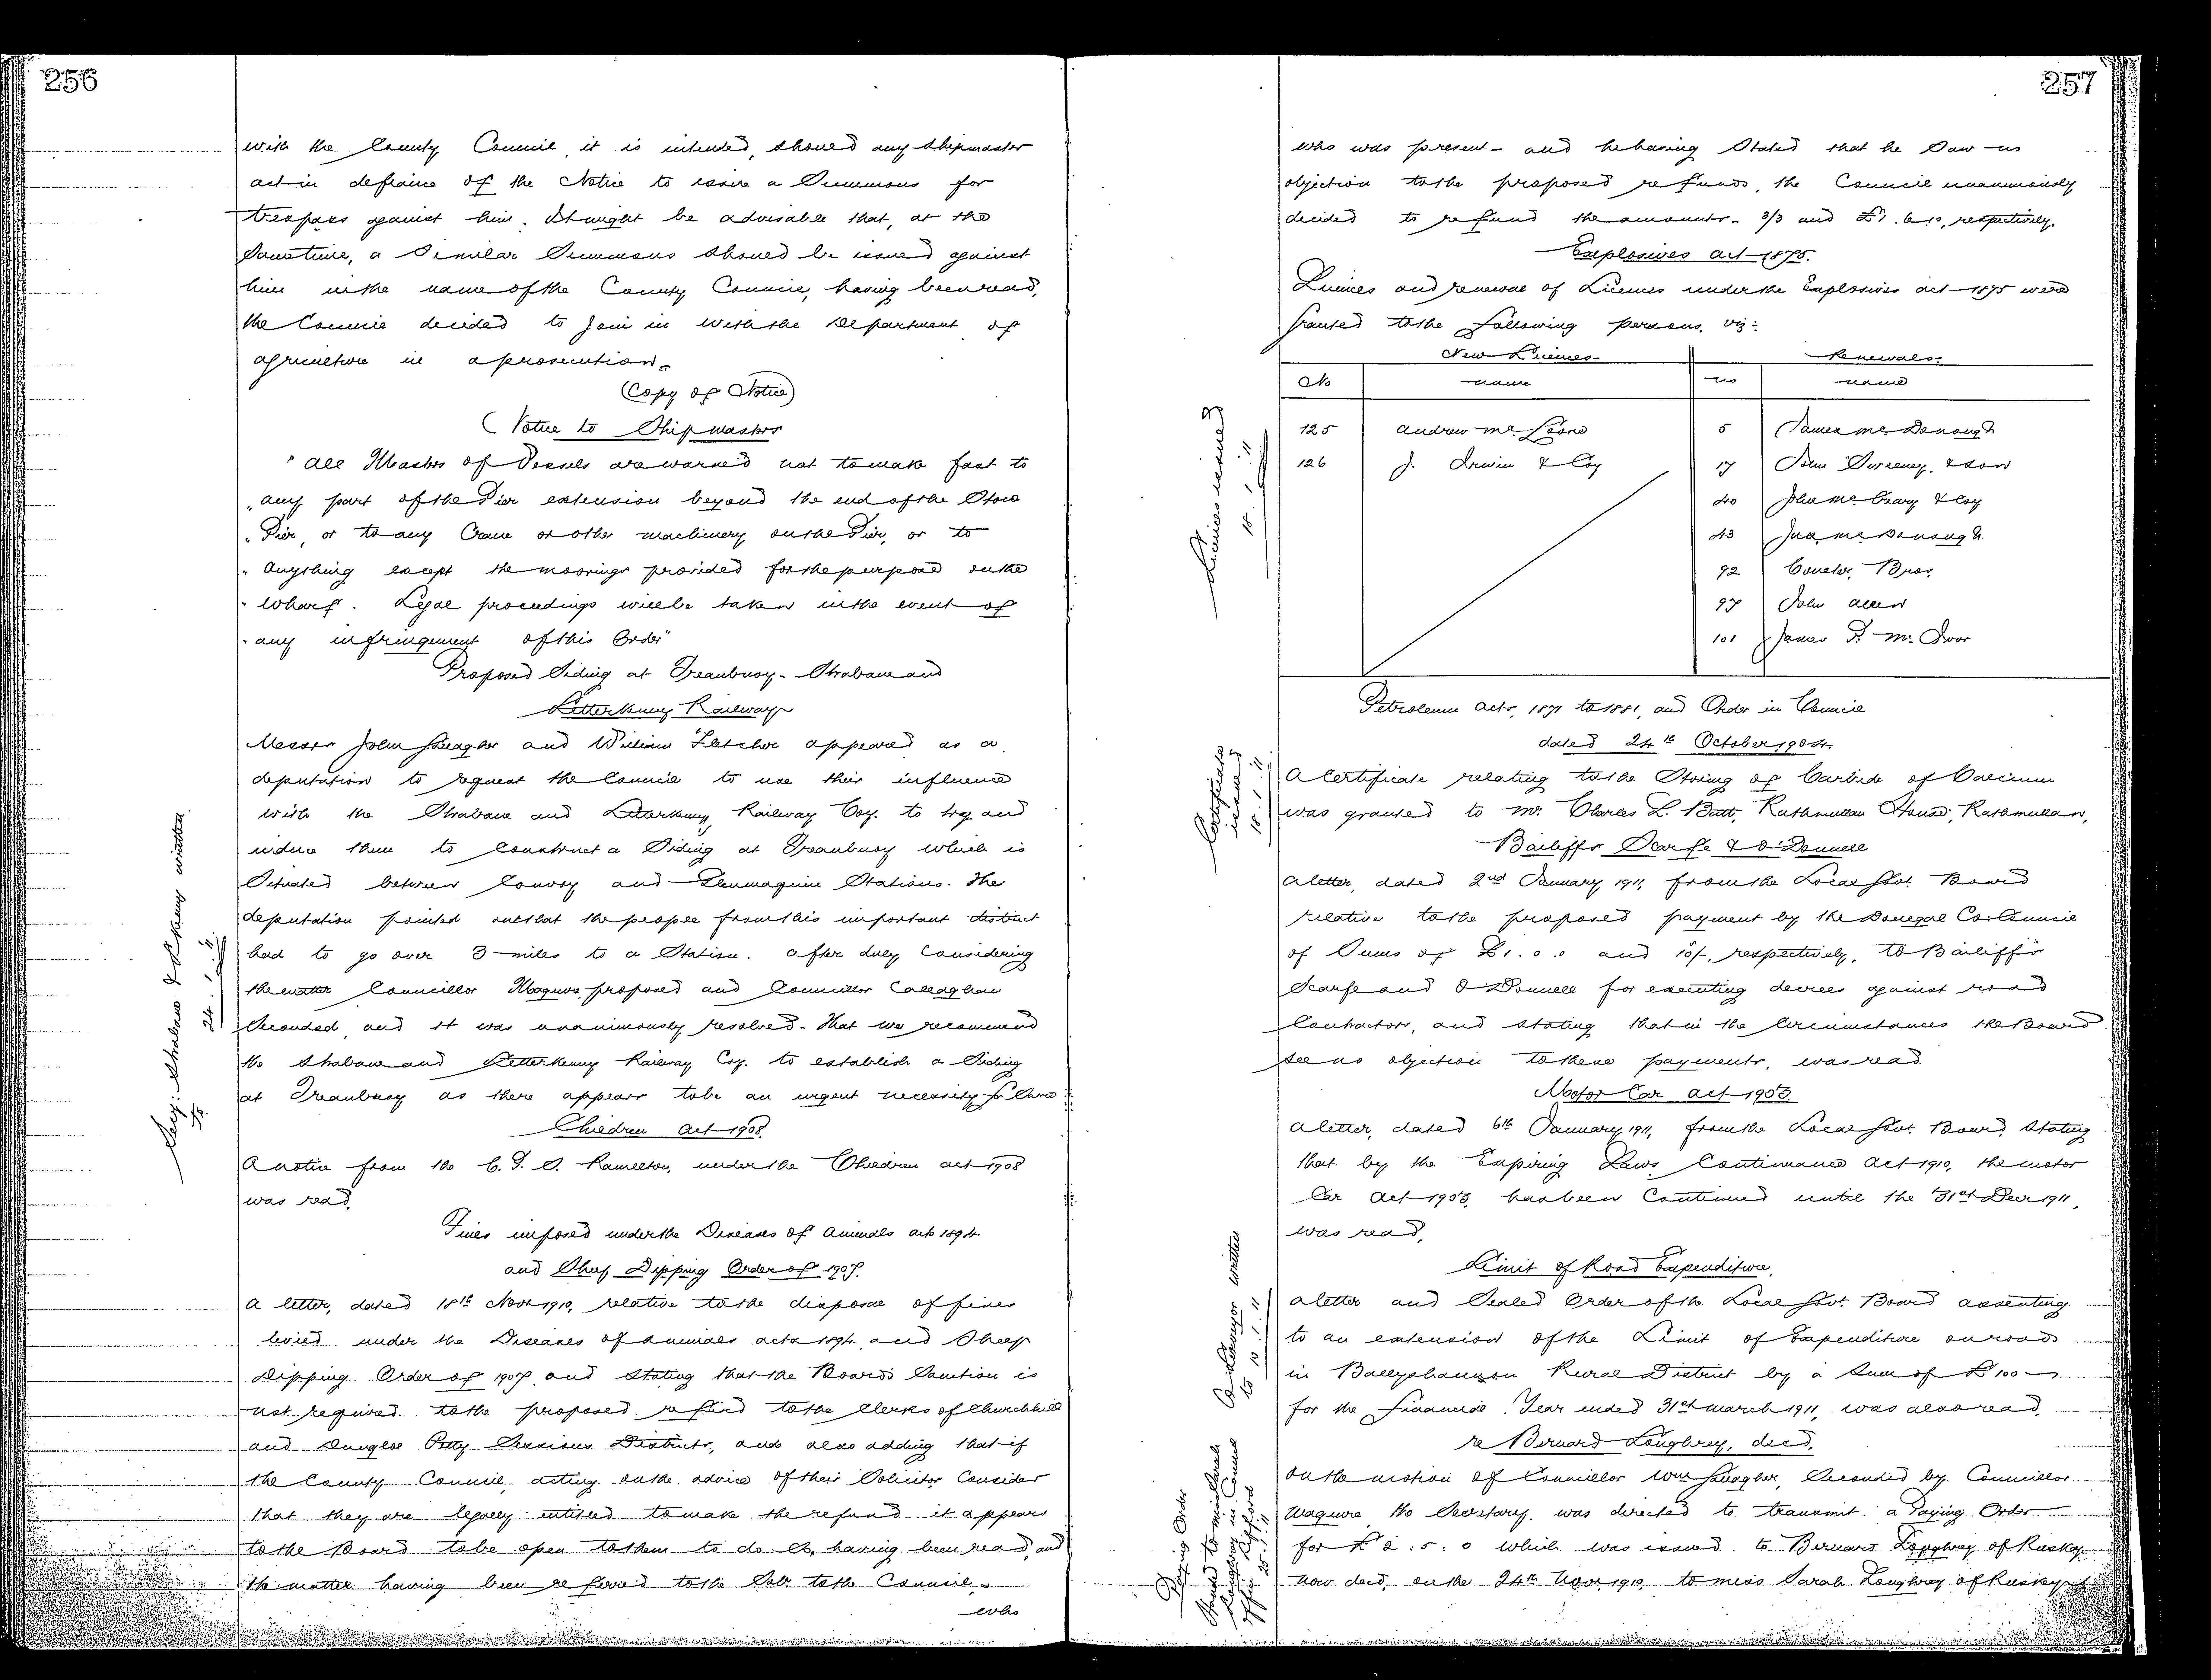 256
with the County Council, it is intended, should any Shipmaster
act in defiance of the Notice to issue a Summons for
trespass against him. It might be advisable that, at the
Sametime, a Similar Summons should be issued against
him in the name of the County Council, having been read,
the Council decided to join in with the Department of
agriculture in a prosecution.
(Copy of Notice)
Notice to Shipmasters
"All Masters of Vessels are warned not to make fast to
"any part of the Pier extension beyond the end of the Stone
"Pier, or to any Crane or other machinery on the Pier, or to
"anything except the moorings provided for the purpose on the
"Wharf. Legal proceedings will be taken in the event of
"any infringement of this Order"
Proposed Siding at Treanbuoy - Strabane and
Letterkenny Railway
Messrs John Gallagher and William Fletcher appeared as a
deputation to request the Council to use their influence
with the Strabane and Letterkenny Railway Coy. to try and
induce them to Construct a Siding at Treanbuoy which is
Situated between Convoy and Glenmaquin Stations. The
deputation pointed out that the people from this important district
had to go over 3 miles to a Station. After duly Considering
the matter Councillor Maguire proposed and Councillor Callaghan
Seconded, and it was unanimously resolved - That we recommend
the Strabane and Letterkenny Railway Coy. to establish a Siding
at Treanbuoy as there appears to be an urgent necessity for Same
Secy: Strabane & L'Kenny written
24.1.11
Children Act 1908.
A notice from the C. P. S. Ramelton, under the Children act 1908
was read.
Fines imposed under the Diseases of Animals act 1894
and Sheep Dipping Order of 1907.
A letter, dated 18th Novr 1910, relative to the disposal of fines
levied under the Diseases of Animals acts 1894, and Sheep
Dipping Order of 1907, and Stating that the Board's Sanction is
not required to the proposed refund to the Clerks of Churchhill
and Dungloe Petty Sessions Districts, and also adding that if
the County Council, acting on the advice of their Solicitor Consider
that they are legally entitled to make the refund it appears
to the Board to be open to them to do so, having been read, and
the matter having been referred to the Solr. to the Council,
who
257
who was present - and he having Stated that he Saw no
objection to the proposed refunds, the Council unanimously
decided to refund the amounts - 3/3 and £1.6.10, respectively.
Explosives Act 1875.
Licences and renewal of Licences under the Explosives act 1875 were
Granted to the following persons, viz:-
Licences issued
18.1.11
New Licences - Renewals -
No name no name
125 Andrew Mc 5 James Mc Donough
126 J. Irwin & Coy 17 John Sweeney, & son
40 John Mc Creary & Coy
43 Jno Mc Donough
92 Coulter, Bros,
97 John Allen
101 James P. Mc Ivor
Petroleum Acts, 1871 to 1881, and Order in Council
dated 24th October 1904.
Certificate issued
18.1.11
A Certificate relating to the Storing of Carbide of Calcium
was granted to Mr. Charles L. Batt, Rathmullan House, Rathmullan,
Bailiffs Scarfe & O'Donnell
A letter, dated 2nd January 1911, from the Local Govt. Board
relative to the proposed payment by the Donegal Co. Council
of Sums of £1.0.0 and 15/-, respectively, to Bailiffs
Scarfe and O'Donnell for executing decrees against road
Contractors, and stating that in the Circumstances the Board
see no objection to these payments, was read.
Motor Car Act 1903.
A letter, dated 6th January, 1911, from the Local Govt. Board, Stating
that by the Expiring Laws Continuance Act 1910, the motor
Car Act 1903, has been Continued until the 31st Decr 1911,
was read,
Limit of Road Expenditure.
A letter and Sealed Order of the Local Govt. Board assenting
to an extension of the Limit of Expenditure on roads
in Ballyshannon Rural District by a Sum of £100
for the Financial Year ended 31st March 1911, was also read.
re Bernard Loughrey, decd,
On the motion of Councillor Wm Gallagher, Seconded by Councillor
Maguire the Secretary was directed to transmit a Paying Order
for £2:5:0 which was issued to Bernard Loughrey of Rusky
now decd, on the 24th Novr 1910 to Miss Sarah Loughrey of Rusky